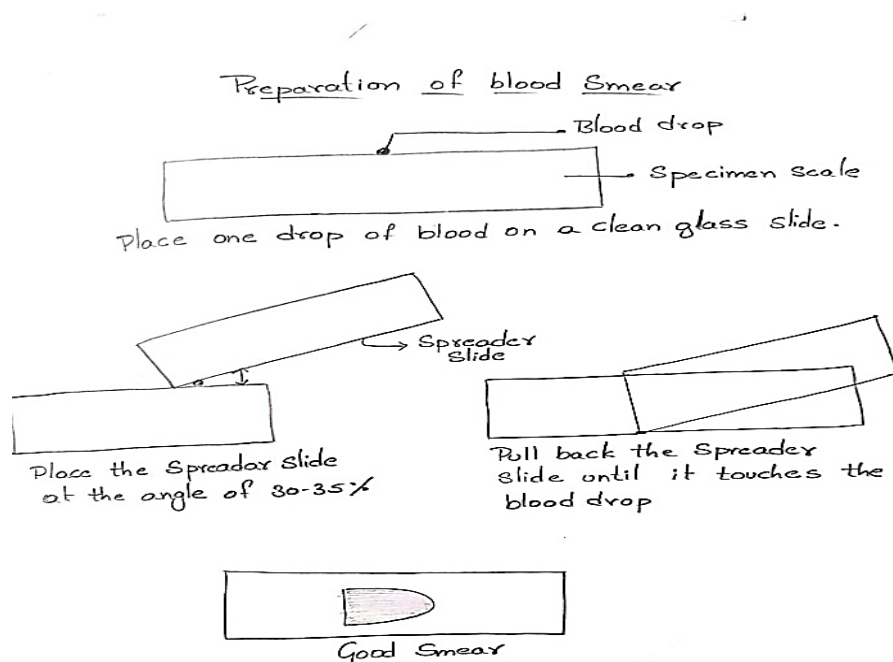 Preparation of blood Smear
Blood drop
Specimen scale
Place one drop of blood on a clean glass slide.
Spreader
Slide
Place the Spreadar Slide
at the angle of 30-35%
Pull back the Spreader
slide until it touches the
blood drop
Good Smear